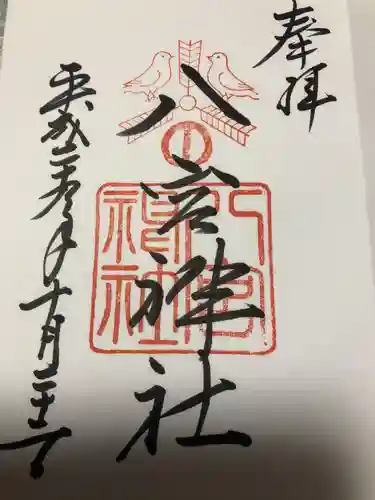 奉拝
八宮神社
八宮
神社
平成年十月二十一日